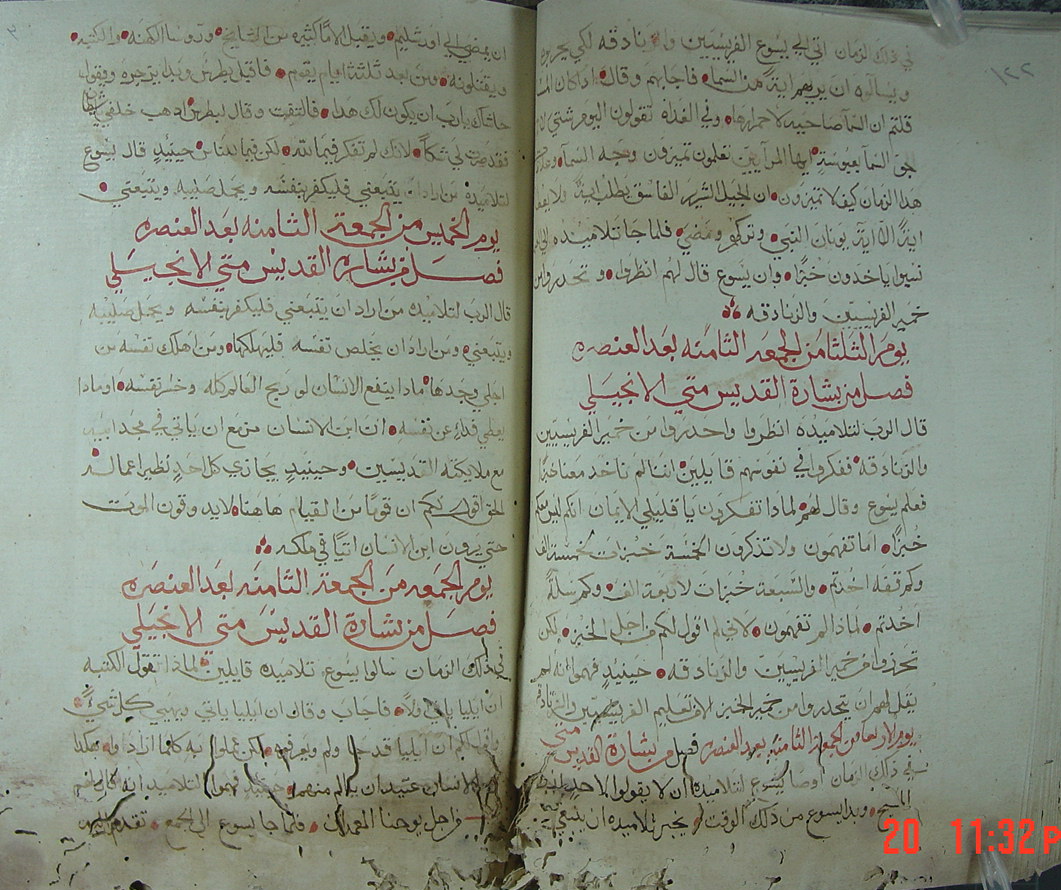 في ذلك الزمان اتي الي يسوع الفريسيين والزنادقه لكي يجربوه
ويسالوه ان يريهم اية من السما فاجابهم وقال اذا كان المسا
قلتم ان السما صاحيه لاحمرارها وفي الغداه تقولون اليوم شتي لان
الجو السما بعبوسة ايها المرآيين تعلمون تميزون وجه السما
هدا الزمان كيف لا تميزون ان الجيل الشرير الفاسق يطلب اية ولا يعطا
اية الا اية يونان النبي وتركهم ومضي فلما جا تلاميذه الي
نسيوا ياخدون خبزا وان يسوع قال لهم انظروا وتحدروا من
خمير الفريسيين والزنادقه
يوم الثلثا من الجمعه الثامنه بعد العنصره
فصل من بشارة القديس متي الانجيلي
قال الرب لتلاميذه انظروا واحدروا من خمير الفريسيين
والزنادقه ففكروا في نفوسهم قايلين اننا لم ناخد معنا خبزا
فعلم يسوع وقال لهم لمادا تفكرون يا قليلي الايمان انكم ليس معكم
خبزا اما تفهمون ولا تذكرون الخمسة خبزات لخمسة الف
وكم قفه اخدتم والسبعة خبزات لاربعة الف وكم سلة
اخدتم لمادا لم تفهمون لاني لم اقول لكم من اجل الخبز لكن
تحرزوا من خمير الفريسيين والزنادقه حينيذ فهموا انه لم
يقل لهم ان يتحدروا من خمير الخبز الا من تعليم الفريسيين والزنادقه
يوم الاربعا من الجمعة الثامنه بعد العنصره فصل من بشارة القديس متي
في ذلك الزمان اوصا يسوع لتلاميذه ان لا يقولوا لاحد
المسيح وبدا يسوع من ذلك الوقت يخبر تلاميذه ان ينبغي
١٢٢
ان يمضي الي اورشليم ويقبل الاما كثيره من المشايخ ورووسا الكهنه والكتبه
ويقتلونه ومن بعد ثلثة ايام يقوم فاقبل بطرس وبدا يزجره ويقول
حاشاك يا رب ان يكون لك هدا فالتفت وقال لبطرس ادهب خلفي
فقد صرت لي شكا لانك لم تفكر فيما لله لكن فيما للناس حينيذ قال يسوع
لتلاميذه من اراد ان يتبعني فليكفر بنفسه ويحمل صليبه ويتبعني
يوم الخميس من الجمعة الثامنه بعد العنصره
فصل من بشارة القديس متي الانجيلي
قال الرب لتلاميذه من اراد ان يتبعني فليكفر بنفسه ويحمل صليبه
ويتبعني ومن اراد ان يخلص نفسه فليهلكها ومن اهلك نفسه من
اجلي وجدها مادا ينفع الانسان لو ربح العالم كله وخسر نفسه او مادا
يعطي فداء عن نفسه ان ابن الانسان مزمع ان ياتي في مجد ابيه
مع ملايكته القديسين وحينيذ يجازي كل احد نظير اعماله
الحق اقول لكم ان قوما من القيام هاهنا لا يدوقون الموت
حتي يرون ابن الانسان اتيا في ملكه
يوم الجمعه من الجمعة الثامنه بعد العنصره
فصل من بشارة القديس متي الانجيلي
في ذلك الزمان سالوا يسوع تلاميذه قايلين لمادا تقول الكتبه
ان ايليا ياتي اولا فاجاب وقال ان ايليا ياتي ويهيي كل شي
واقول لكم ان ايليا قد جا ولم يعرفوه لكن عملوا به كلما ارادوا هكدا
الانسان عتيد ان يالم منهم حينيذ فهموا التلاميذ انه
من اجل يوحنا المعمدان فلما جا يسوع الي الجمع تقدم
20 11:32 P